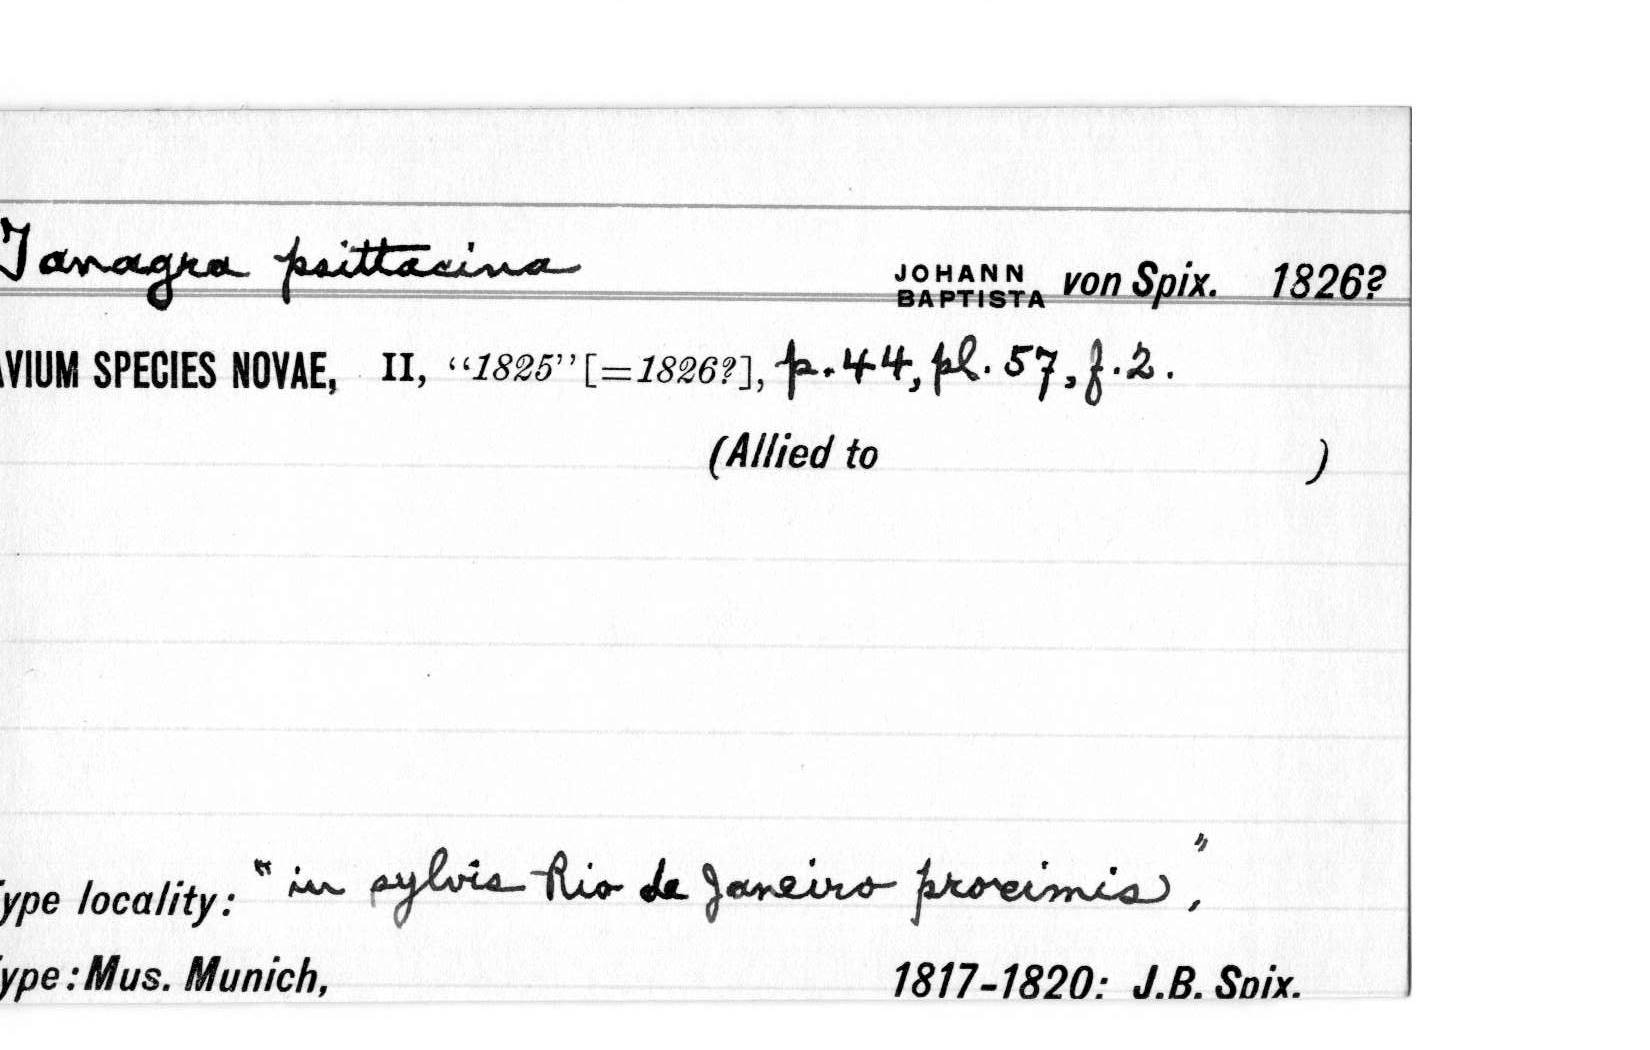 Tanagra psittacina JOHANN BAPTISTA von Spix. 1826?
AVIUM SPECIES NOVAE, II, “1825” [=1826?], p. 44, pl. 57, f. 2.
(Allied to )
Type locality: "in sylvis Rio de Janeiro proximis",
Type: Mus. Munich, 1817-1820: J.B. Spix.